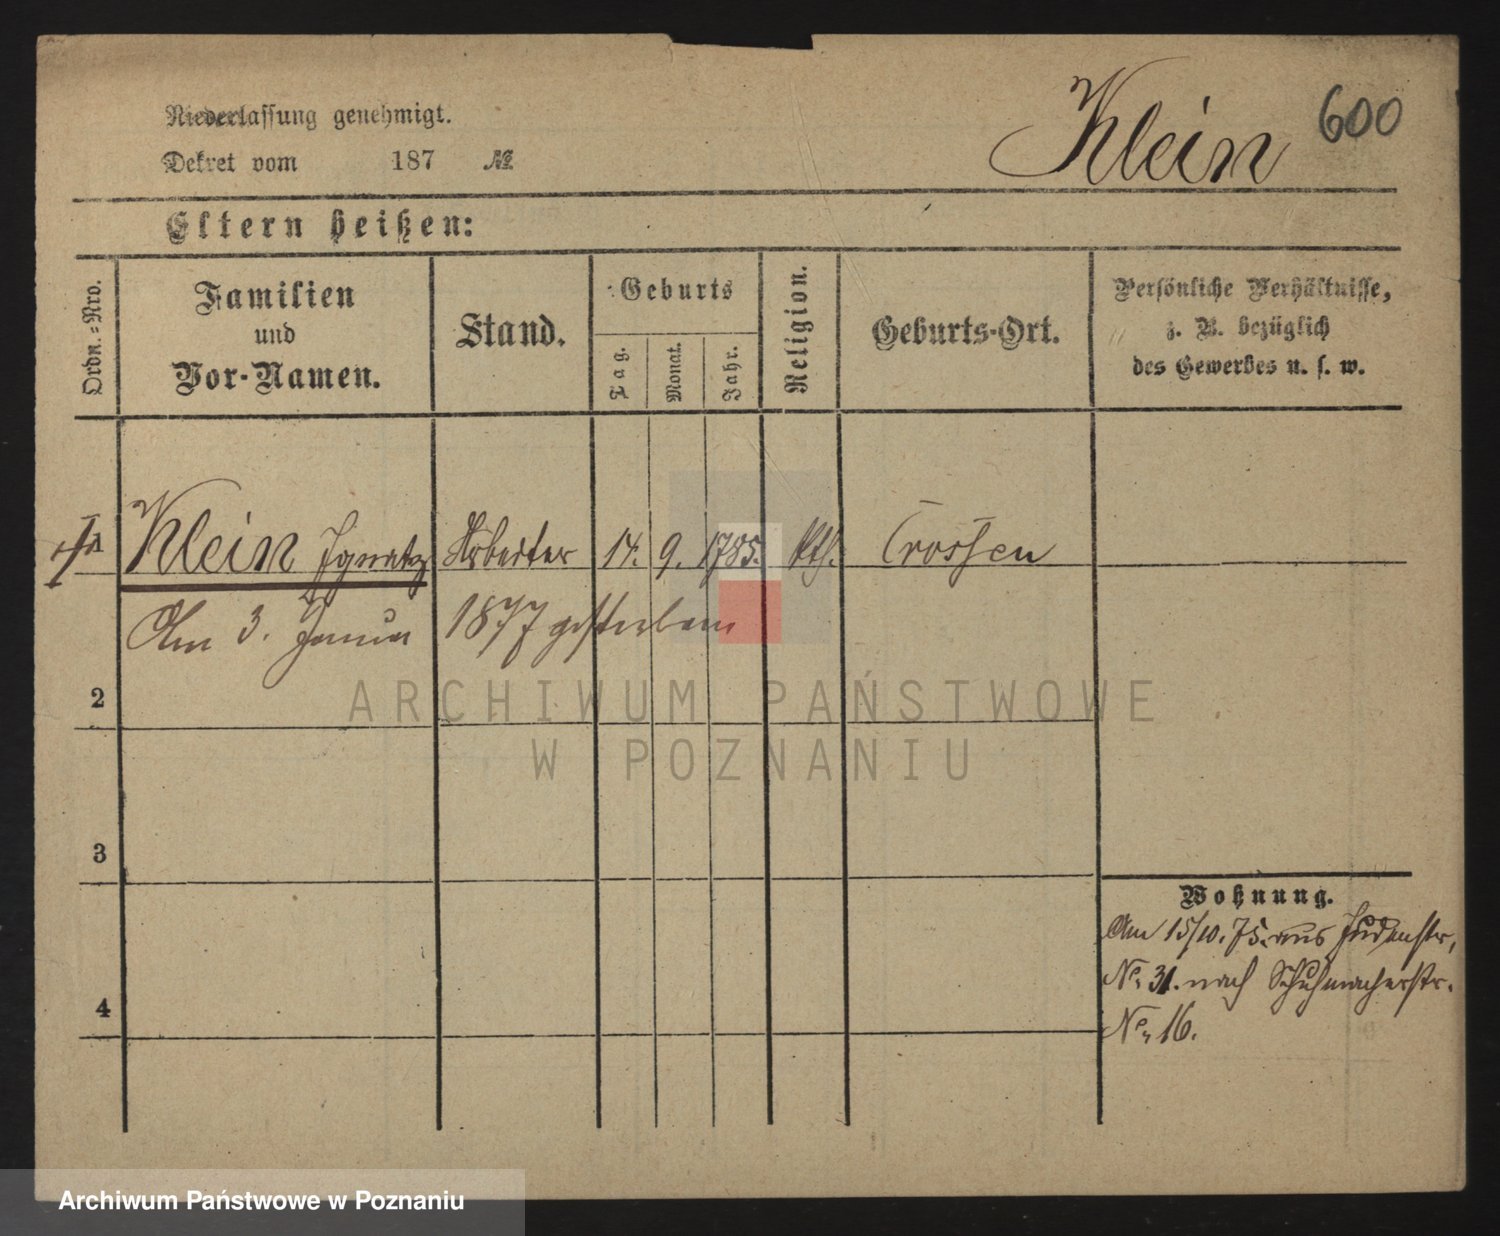 Niederlassung genehmigt.
Klein 600
Dekret vom 187 №
Eltern heißen:
Ordn.-Nro.
Familien
und
Vor-Namen.
Stand.
Geburts
Tag.
Monat.
Jahr.
Religion.
Geburts-Ort.
Persönliche Verhältnisse,
z. B. bezüglich
des Gewerbes u. s. w.
1 Klein Ignatz Arbeiter 14. 9. 1785. kth. Crossen
Am 3. Januar 1877 gestorben
2
3
4
Wohnung.
Am 15/10. 75. aus Judenstr,
No. 31. nach Schuhmacherstr.
No. 16.
ARCHIWUM PAŃSTWOWE
W POZNANIU
Archiwum Państwowe w Poznaniu